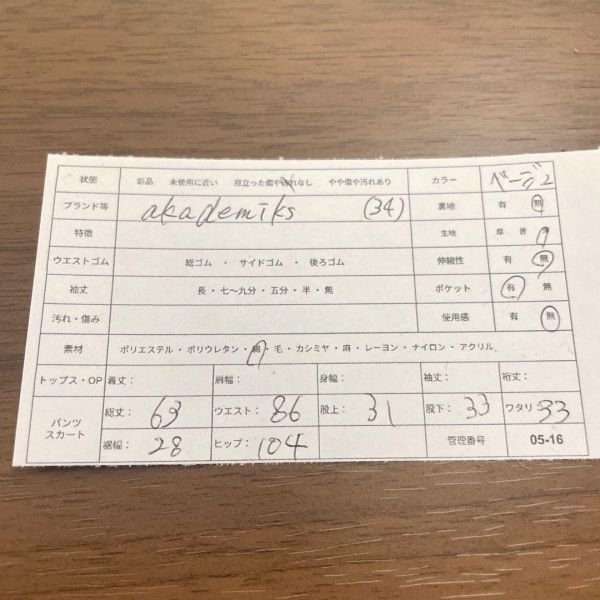 状態 新品 未使用に近い 目立った傷や汚れなし やや傷や汚れあり カラー ベージュ
ブランド等 akademiks (34) 裏地 有 無
特徴 生地 厚 普
ウエストゴム 総ゴム ・ サイドゴム ・ 後ろゴム 伸縮性 有 無
袖丈 長・七〜九分・五分・半・無 ポケット 有 無
汚れ・傷み 使用感 有 無
素材 ポリエステル・ポリウレタン・綿・毛・カシミヤ・麻・レーヨン・ナイロン・アクリル
トップス・OP 着丈: 肩幅: 身幅: 袖丈: 裄丈:
パンツ スカート 総丈: 63 ウエスト: 86 股上: 31 股下: 33 ワタリ: 33
裾幅: 28 ヒップ: 104 管理番号 05-16